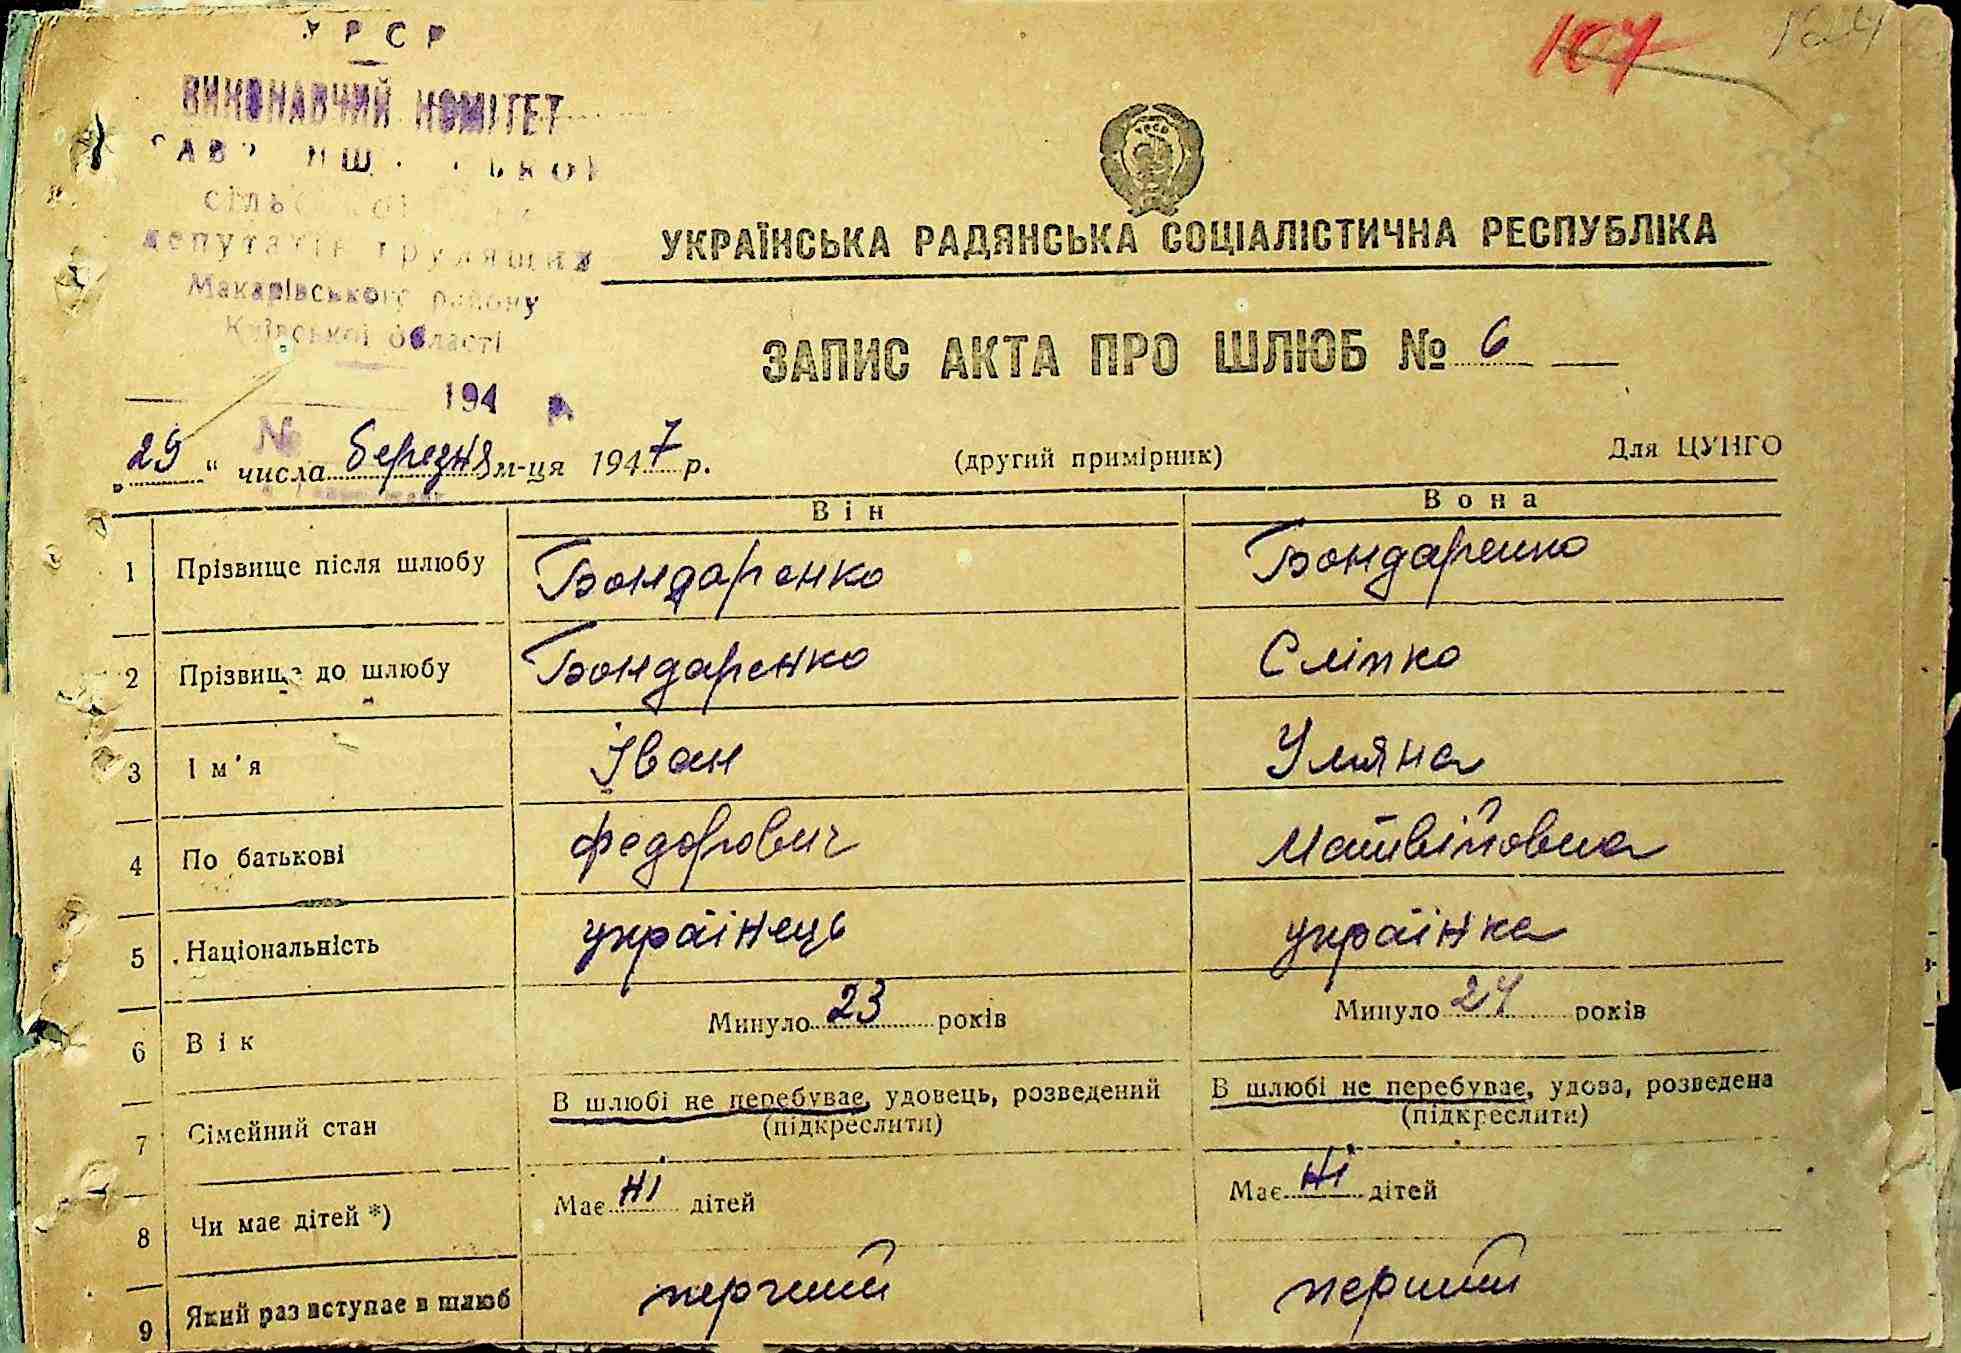 УРСР
ВИКОНАВЧИЙ КОМІТЕТ
депутатів трудящих
Макарівського району
Київської області
194 р.
№
107
124
УКРАЇНСЬКА РАДЯНСЬКА СОЦІАЛІСТИЧНА РЕСПУБЛІКА
ЗАПИС АКТА ПРО ШЛЮБ № 6
„29“ числа березня м-ця 1947 р. (другий примірник) Для ЦУНГО
Він Вона
1 Прізвище після шлюбу Бондаренко Бондаренко
2 Прізвище до шлюбу Бондаренко Сліпко
3 Ім'я Іван Уляна
4 По батькові Федорович Матвійовна
5 Національність українець українка
6 Вік Минуло 23 років Минуло 24 років
7 Сімейний стан В шлюбі не перебуває, удовець, розведений (підкреслити) В шлюбі не перебуває, удова, розведена (підкреслити)
8 Чи має дітей *) Має ні дітей Має ні дітей
9 Який раз вступає в шлюб перший перший